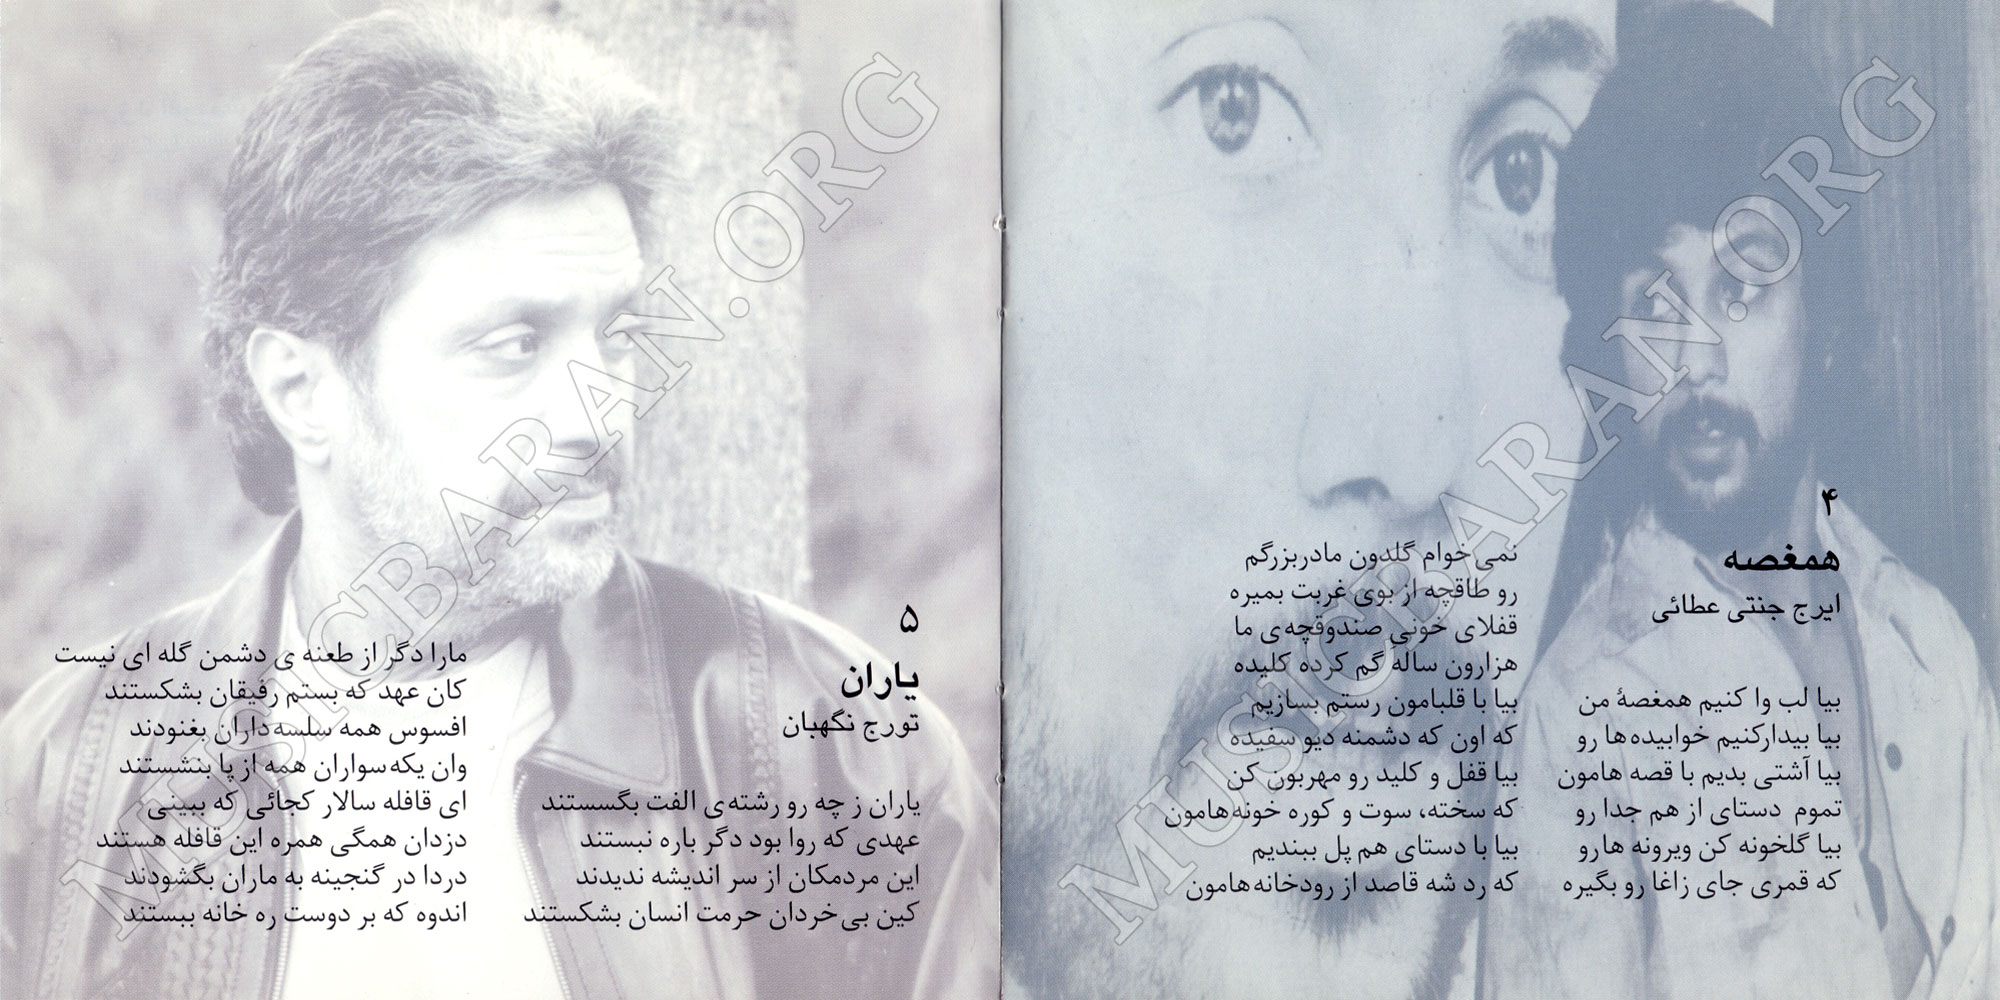 ۴
همغصه
ایرج جنتی عطائی
بیا لب وا کنیم همغصهٔ من
بیا بیدارکنیم خوابیده‌ها رو
بیا آشتی بدیم با قصه هامون
تموم دستای از هم جدا رو
بیا گلخونه کن ویرونه هارو
که قمری جای زاغا رو بگیره
نمی‌خوام گلدون مادربزرگم
رو طاقچه از بوی غربت بمیره
قفلای خونیِ صندوقچه‌ی ما
هزارون ساله گم کرده کلیده
بیا با قلبامون رستم بسازیم
که اون که دشمنه دیو سفیده
بیا قفل و کلید رو مهربون کن
که سخته، سوت و کوره خونه‌هامون
بیا با دستای هم پل ببندیم
که رد شه قاصد از رودخانه‌هامون
۵
یاران
تورج نگهبان
یاران ز چه رو رشته‌ی الفت بگسستند
عهدی که روا بود دگر باره نبستند
این مردمکان از سر اندیشه ندیدند
کین بی‌خردان حرمت انسان بشکستند
مارا دگر از طعنه ی دشمن گله ای نیست
کان عهد که بستم رفیقان بشکستند
افسوس همه سلسه‌داران بغنودند
وان یکه‌سواران همه از پا بنشستند
ای قافله سالار کجائی که ببینی
دزدان همگی همره این قافله هستند
دردا در گنجینه به ماران بگشودند
اندوه که بر دوست ره خانه ببستند
MUSICBARAN.ORG
MUSICBARAN.ORG